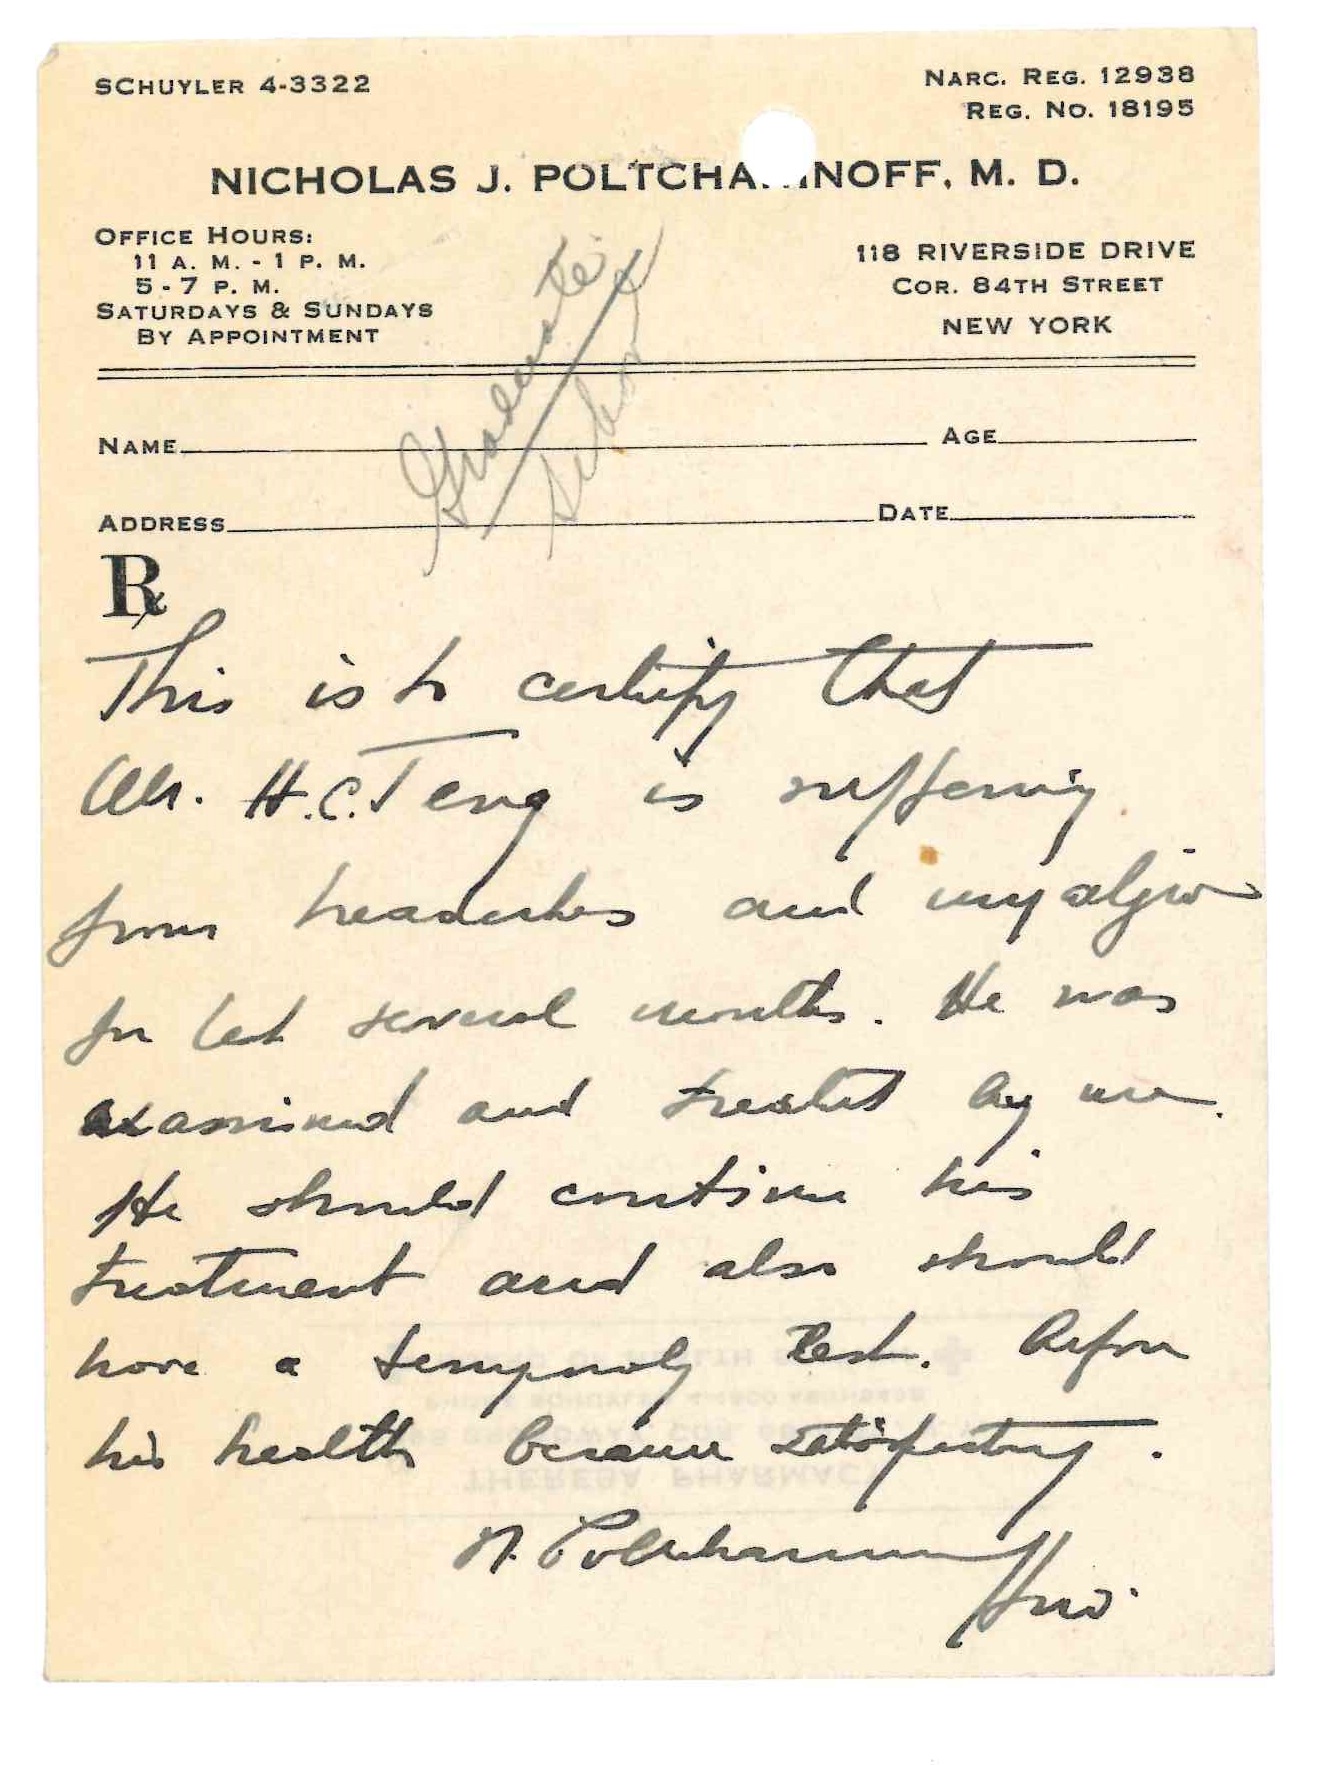 SCHUYLER 4-3322
NARC. REG. 12938
REG. NO. 18195
NICHOLAS J. POLTCHA NOFF, M. D.
OFFICE HOURS:
11 A. M. - 1 P. M.
5 - 7 P. M.
SATURDAYS & SUNDAYS
BY APPOINTMENT
118 RIVERSIDE DRIVE
COR. 84TH STREET
NEW YORK
Graduate
NAME AGE
ADDRESS DATE
Rx
This is to certify that
Mr. H.C. Teng is suffering
from headaches and myalgia
for last several months. He was
examined and treated by me.
He should continue his
treatment and also should
have a rest. Before
his health became satisfactory.
N. Poltchaninoff
THERESA PHARMACY